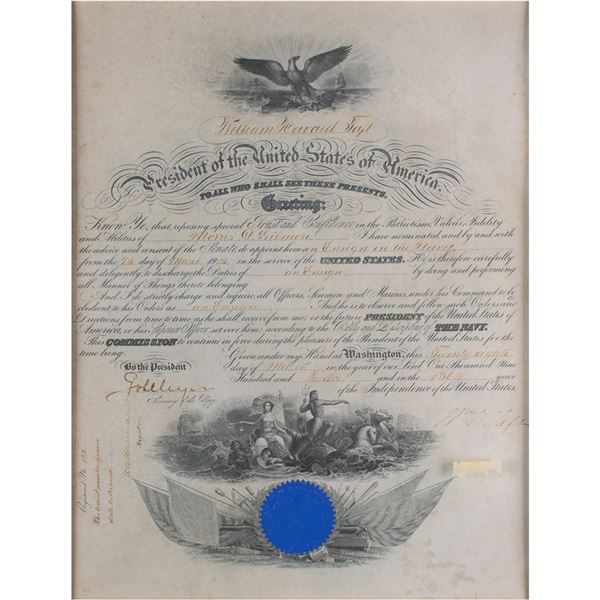 William Howard Taft
President of the United States of America.
TO ALL WHO SHALL SEE THESE PRESENTS,
Greeting:
Know Ye, that reposing special Trust and Confidence in the Patriotism, Valour, Fidelity
and Abilities of Morris D. Gilmore I have nominated, and by and with
the advice and consent of the Senate, do appoint him an Ensign in the Navy
from the day of March in the service of the UNITED STATES. He is therefore carefully
and diligently to discharge the Duties of an Ensign by doing and performing
all Manner of Things thereto belonging
And I do strictly charge and require all Officers, Seamen and Marines, under his Command to be
obedient to his Orders as an Ensign And he is to observe and follow such Orders and
Directions from time to time as he shall receive from me, or the future PRESIDENT of the United States of
America, or his Superior Officer set over him, according to the Rules and Discipline of THE NAVY.
This COMMISSION to continue in force during the pleasure of the President of the United States for the
time being.
Given under my Hand at Washington, this Twenty eighth
day of March in the year of our Lord One Thousand Nine
Hundred and Twelve and in the 136th year
of the Independence of the United States.
By the President
GvLMeyer
Secretary of the Navy
Wm H Taft
Registered No.